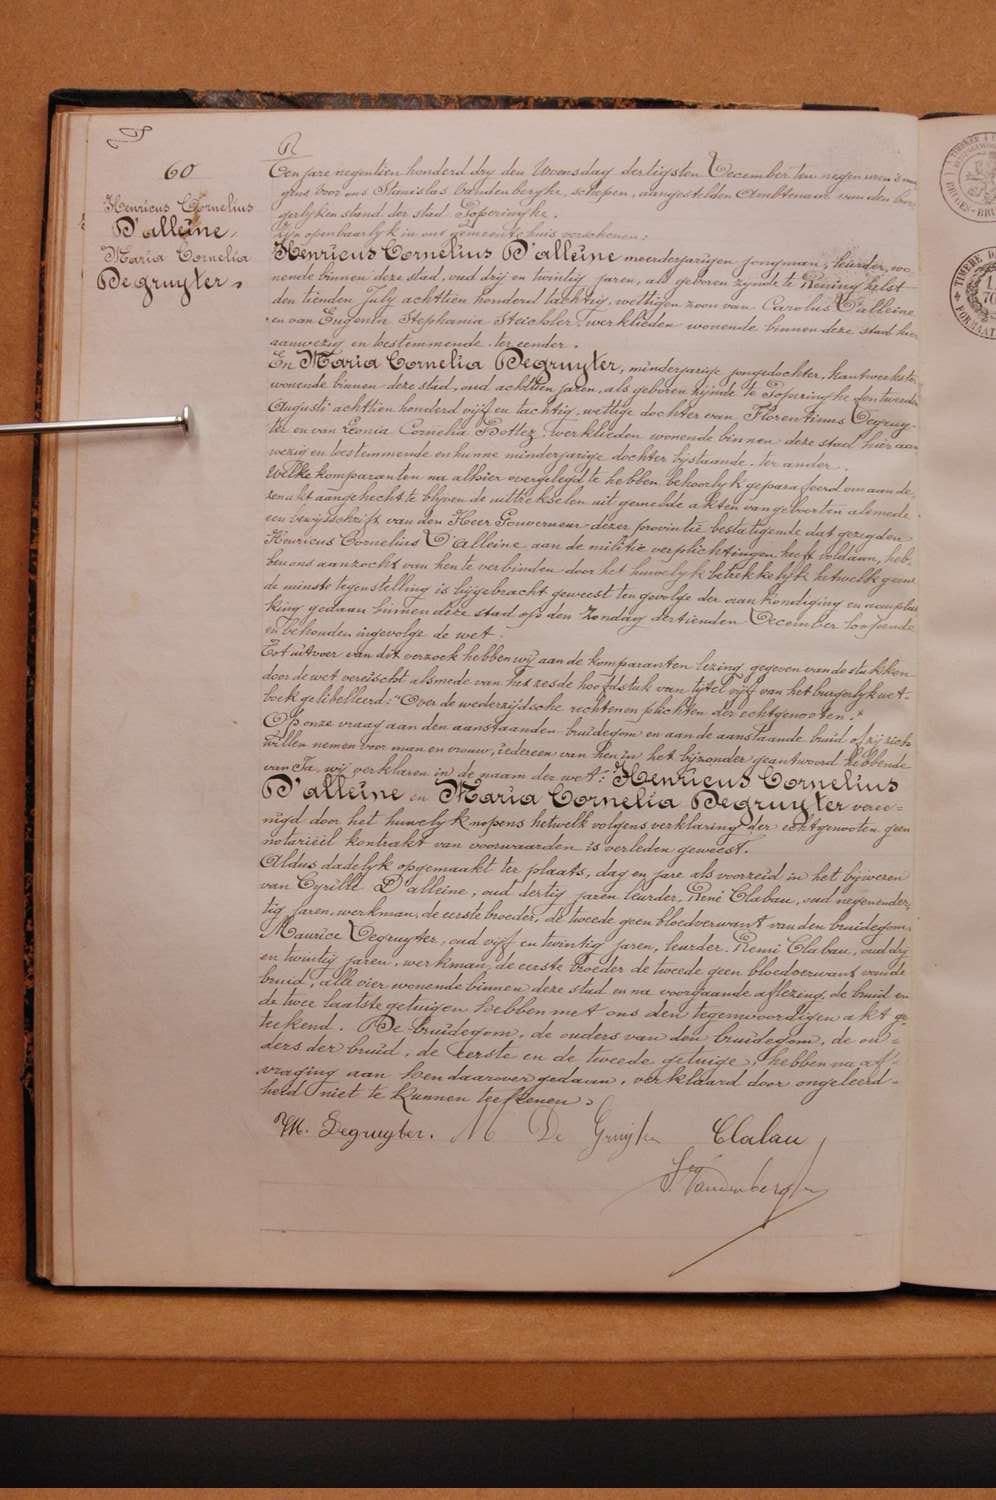 60
Henricus Cornelius
D'alleine,
Maria Cornelia
Degruyter,
Ten jare negentien honderd dry den Woensdag dertigsten December ten negen uren 's mor
gens voor ons Stanislas Vandenberghe, schepen, aangestelden Ambtenaar van den bur
gerlyken stand der stad Poperinghe.
Zyn openbaarlyk in ons gemeentehuis verschenen:
Henricus Cornelius D'alleine meerderjarigen jongman, leurder, wo
nende binnen deze stad, oud drij en twintig jaren, als geboren zynde te Reninghelst
den tienden July achttien honderd tachtig, wettigen zoon van Carolus D'alleine
en van Eugenia Stephania Steichler, werklieden wonende binnen deze stad hier
aanwezig en toestemmende. ter eender.
En Maria Cornelia Degruyter, minderjarige jongedochter, kantwerkster
wonende binnen deze stad, oud achttien jaren, als geboren zijnde te Poperinghe den tweeden
Augusti achttien honderd vijf en tachtig, wettige dochter van Florentinus Degruy-
ter en van Leonia Cornelia Bottez, werklieden wonende binnen deze stad hier aan
wezig en toestemmende en hunne minderjarige dochter bijstaande. ter ander.
Welke komparanten na alhier overgelegd te hebben behoorlyk geparafeerd om aan de-
zen akt aangehecht te blyven de uittrekselen uit gemelde akten van geboorten alsmede
een bewijsschrift van den Heer Gouverneur dezer provintie bestatigende dat gezegden
Henricus Cornelius D'Alleine aan de militie verplichtingen heeft voldaan, heb-
ben ons aanzocht van hen te verbinden door het huwelyk betrekkelyk hetwelk geene
de minste tegenstelling is bijgebracht geweest ten gevolge der aankondiging en aanplak
king gedaan binnen deze stad op den Zondag dertienden December loopende
en behouden ingevolge de wet.
Tot uitvoer van dit verzoek hebben wij aan de komparanten lezing gegeven van de stukken
door de wet vereischt alsmede van het zesde hoofdstuk van tytel vijf van het burgerlyk wet-
boek gelibelleerd: "Over de wederzijdsche rechten en plichten der echtgenooten."
Op onze vraag aan den aanstaanden bruidegom en aan de aanstaande bruid of zij zich
willen nemen voor man en vrouw, iedereen van hen in het bijzonder geantwoord hebbende
van Ja, wij verklaren in de naam der wet: Henricus Cornelius
D'alleine en Maria Cornelia Degruyter veree-
nigd door het huwelyk nopens hetwelk volgens verklaring der echtgenooten geen
notariëel kontrakt van voorwaarden is verleden geweest.
Aldus dadelyk opgemaakt ter plaats, dag en jare als voorzeid in het bijwezen
van Cyrille D'alleine, oud dertig jaren leurder, René Clabau, oud negenender-
tig jaren, werkman, de eerste broeder, de tweede geen bloedverwant van den bruidegom,
Maurice Degruyter, oud vijf en twintig jaren, leurder. Remi Clabau, oud dry
en twintig jaren, werkman, de eerste broeder de tweede geen bloedverwant van de
bruid, alle vier wonende binnen deze stad en na voorgaande aflezing, de bruid en
de twee laatste getuigen hebben met ons den tegenwoordigen akt ge-
teekend. De bruidegom, de ouders van den bruidegom, de ou-
ders der bruid, de eerste en de tweede getuige, hebben na af-
vraging aan hen daarover gedaan, verklaard door ongeleerd-
heid niet te kunnen teekenen.
M. Degruyter. M De Gruyter Clabau
S. Vandenberghe